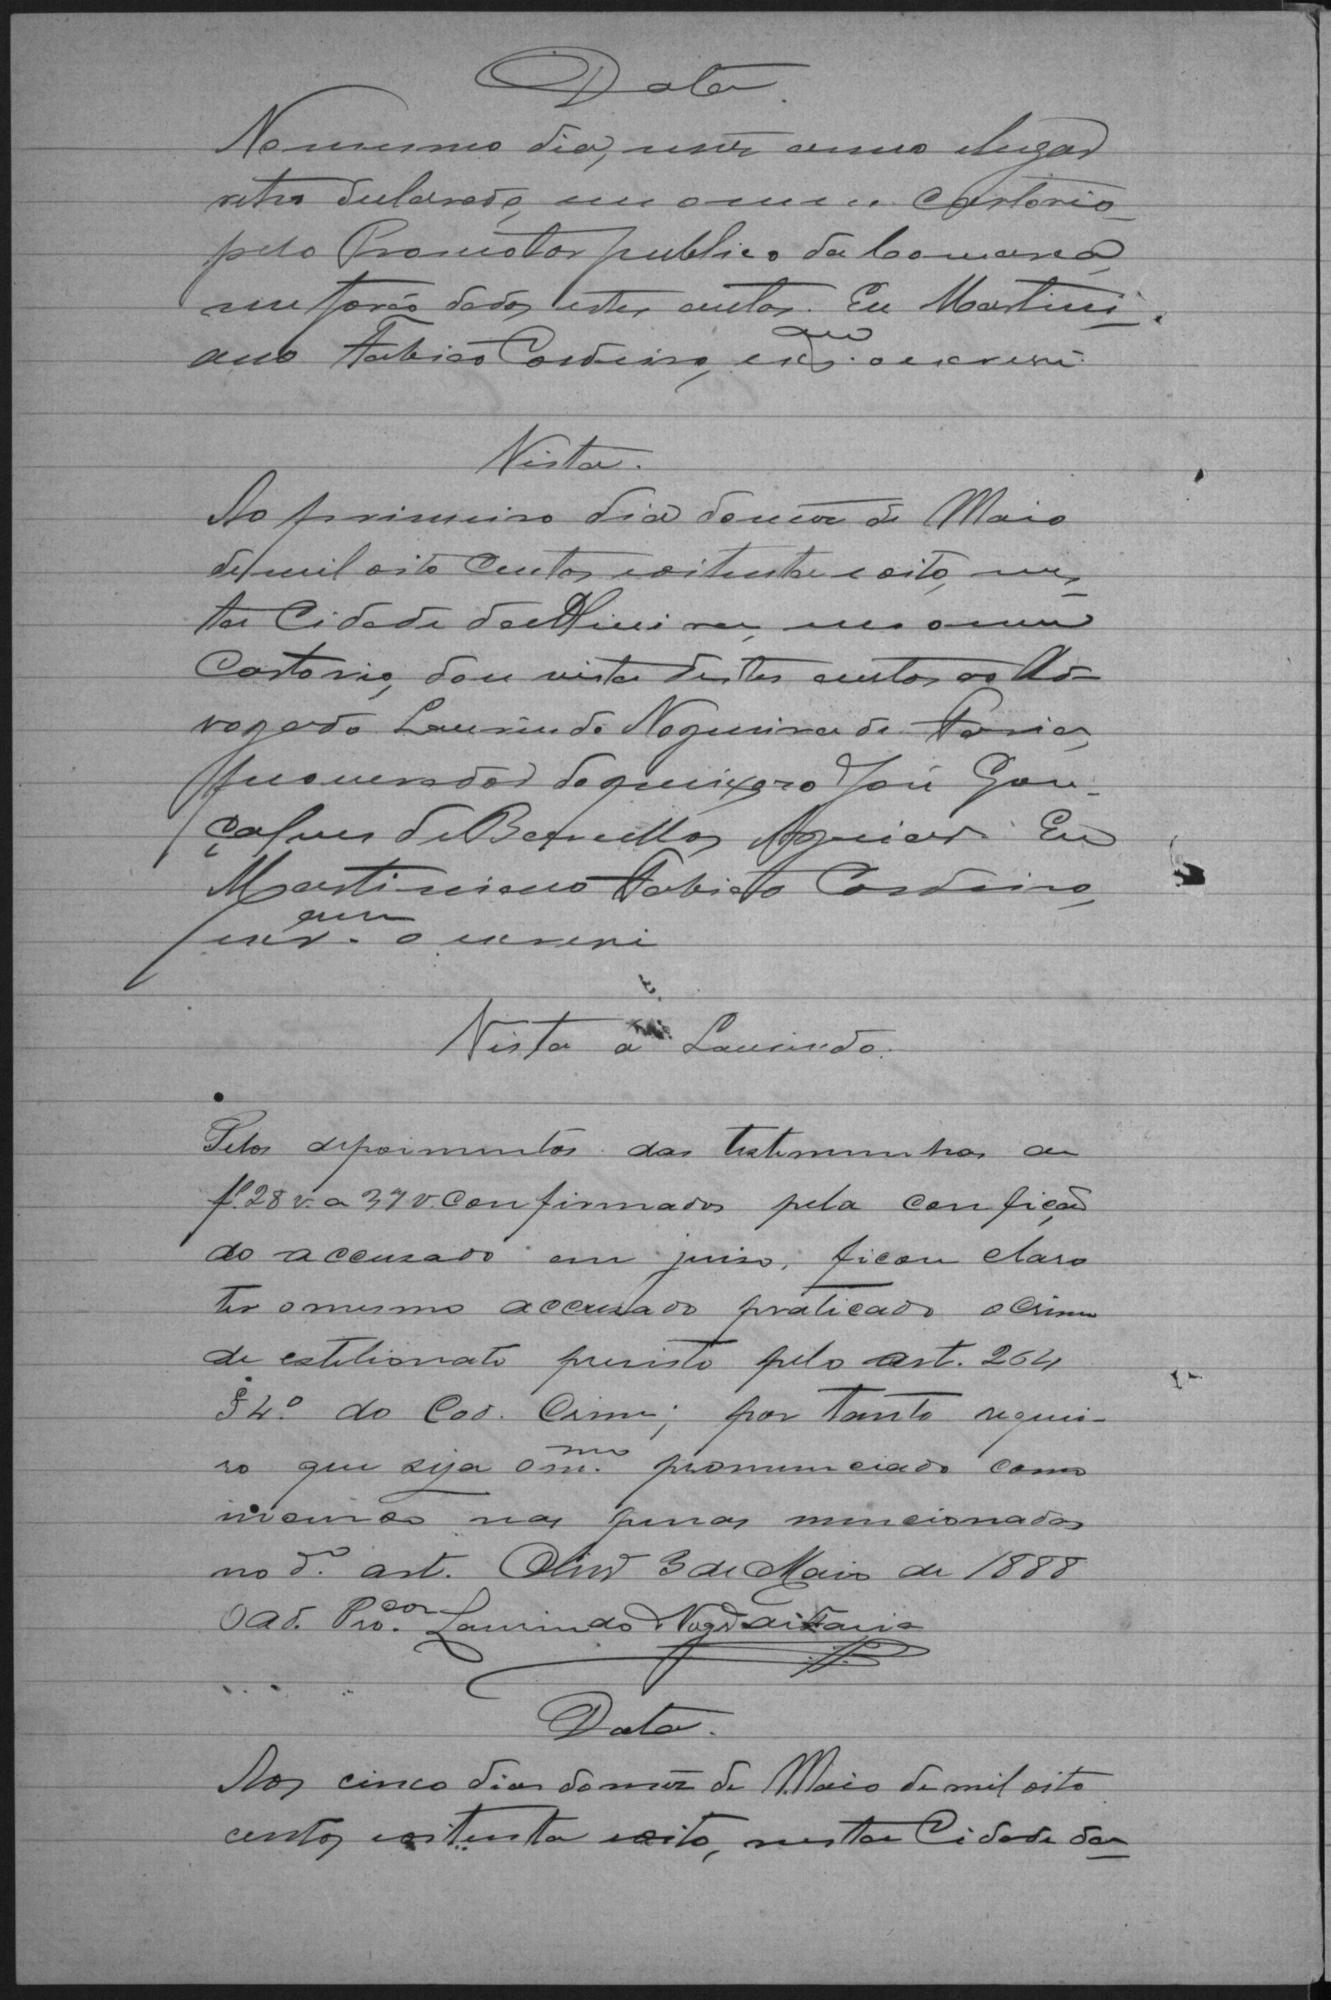 Data.
No mesmo dia, mez anno e lugar
retro declarado, em o meu cartorio
pelo Promotor publico da Comarca,
me forão dados estes autos. Eu Martini-
ano Fabião Cordeiro, escr.am o escrevi.
Vista.
Ao primeiro dia do mez de Maio
de mil oito centos e oitenta e oito, nes-
ta Cidade da Oliveira, em o meu
Cartorio, dou vista destes autos ao Ad-
vogado Laurindo Nogueira de Faria,
procurador do queixoso José Gon-
çalves de Barcellos Aguiar. Eu
Martiniano Fabião Cordeiro,
escr.am o escrevi
Vista a Laurindo.
Pelos depoimentos das testemunhas de
f. 28 v. a 37 v. confirmados pela confição
do accusado em juiso, ficou claro
ter o mesmo accusado praticado o crime
de estelionato previsto pelo art. 264
§ 4.º do Cod. Crime; por tanto requei-
ro que seja o m.mo pronunciado como
incurso nas penas mencionadas
no d.o art. Oliv.ª 3 de Maio de 1888
O Ad. Pro.dor Laurindo Nog.ra de Faria
Data.
Aos cinco dias do mez de Maio de mil oito
centos e oitenta e oito, nesta Cidade da